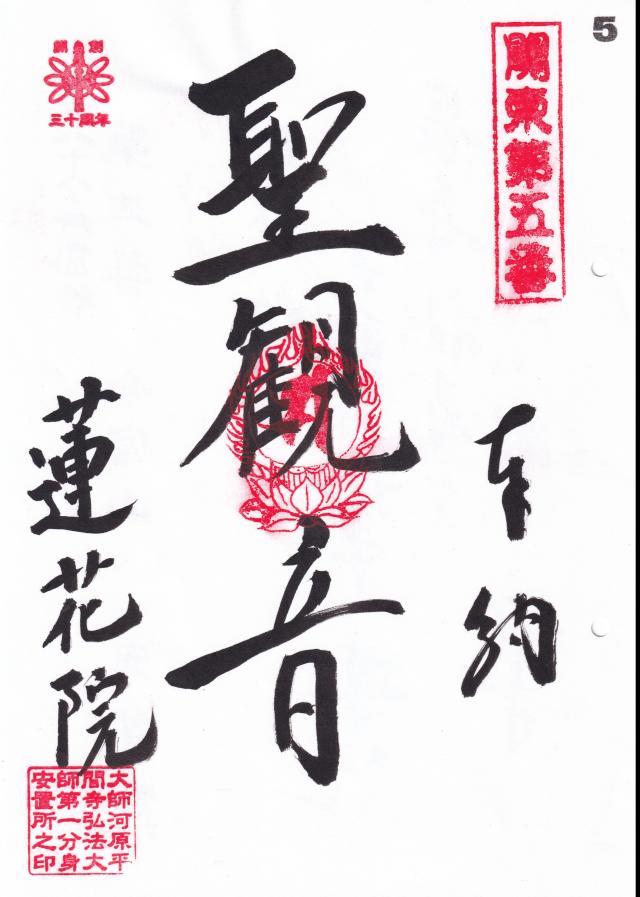 5
関東第五番
奉納
聖観音
開創
三十周年
蓮花院
大師河原平
間寺弘法大
師第一分身
安置所之印